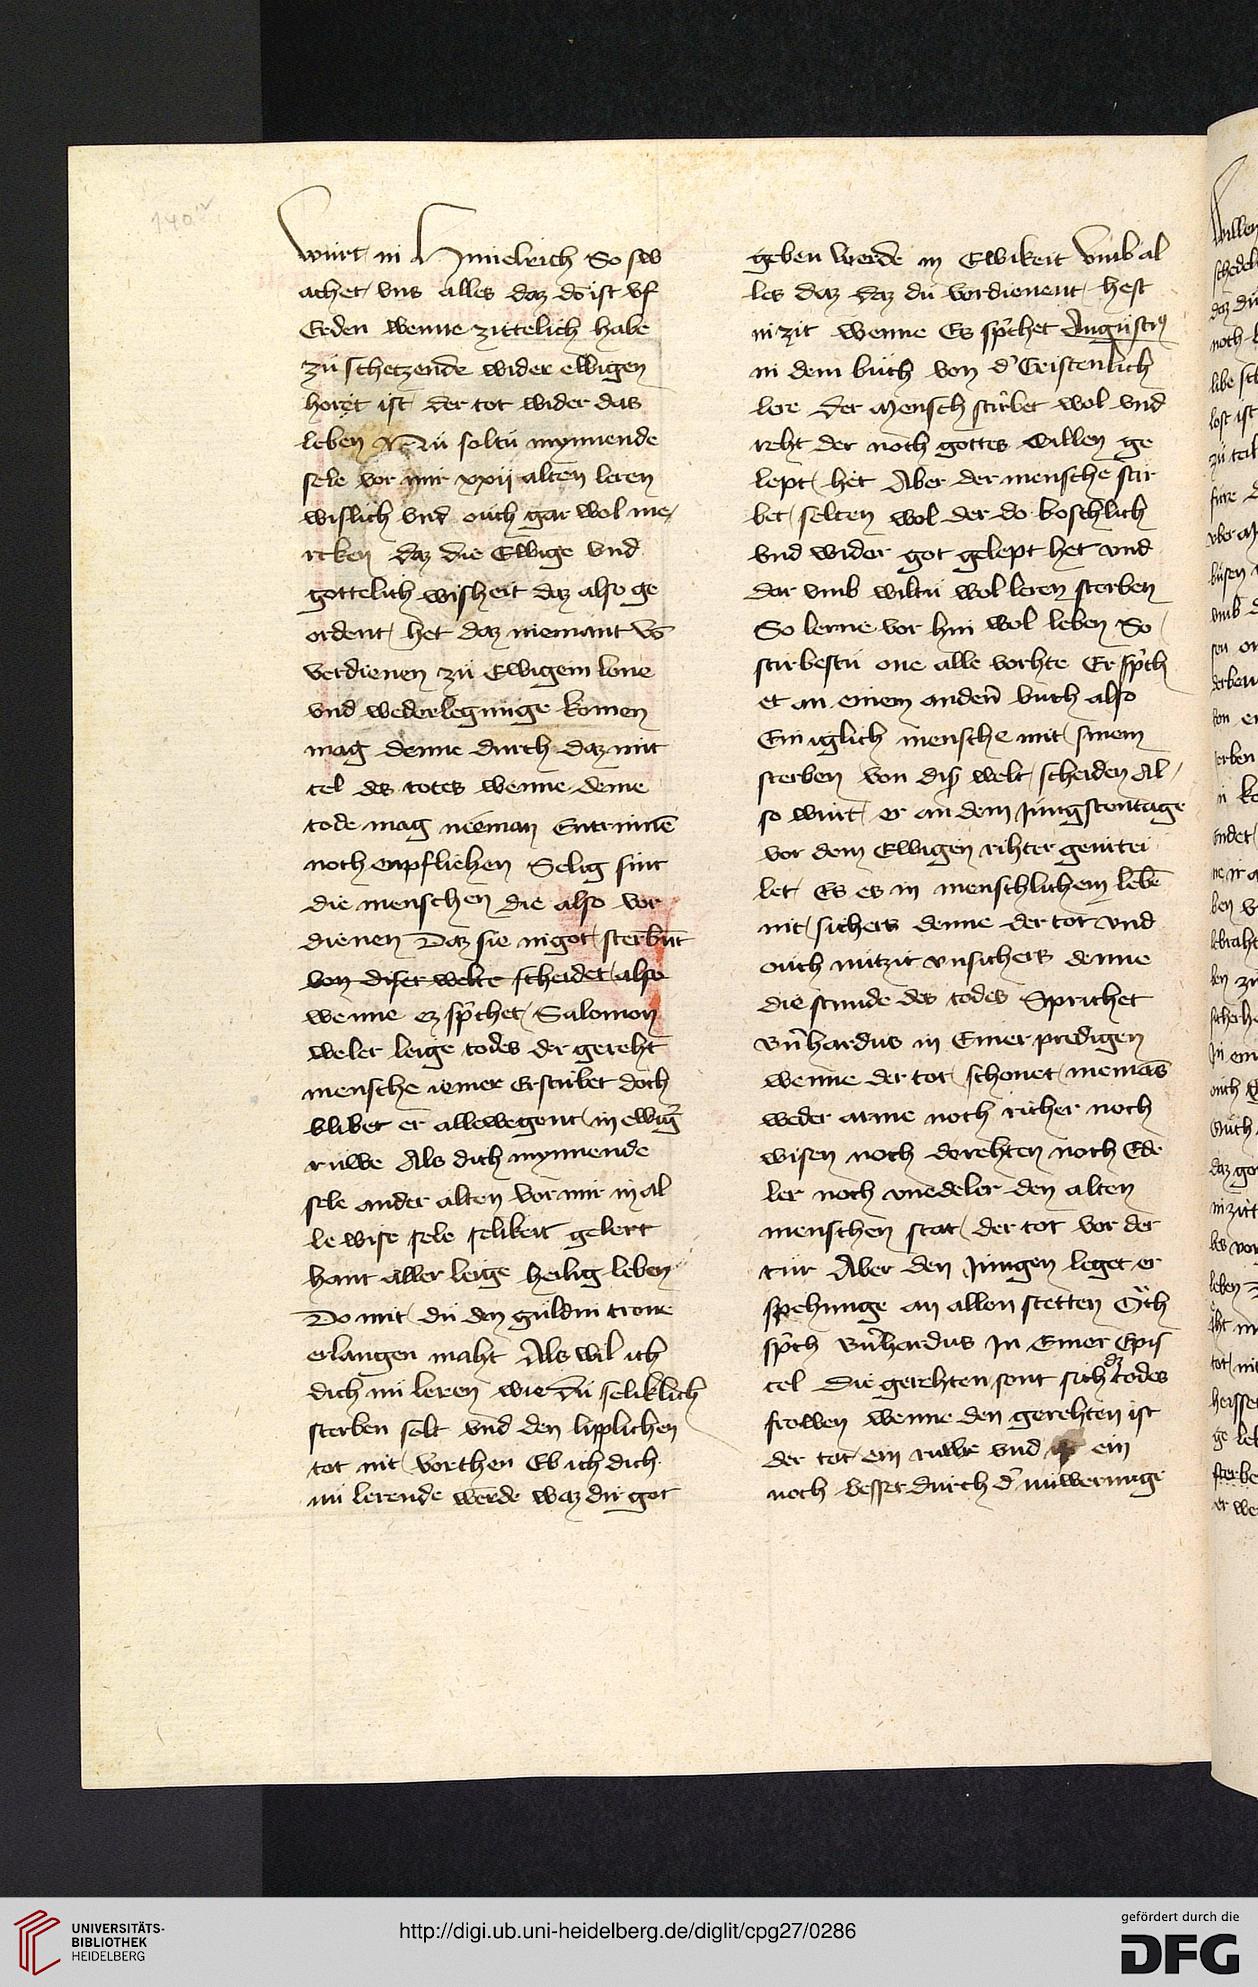 140v
wurt in Himelrich So sw
achet vns alles daz do ist vf
Erden wenne zittelich habe
zů schetzende wider ewigen
horet ist der tot wider das
leben Nů soltu mynnende
sele vor mir xxiiij alten leren
wislich vnd ouch gar wol me
rcken daz die Ewige vnd
gottelich wisheit daz also ge
ordent het daz niemant vō
verdienen zů Ewigem lone
vnd wederlegunge komen
mag denne durch daz mit
tel des totes wenne deme
tode mag nieman Entrinnē
noch enpfliehen Selig sint
die menschen die also vor
dienen Daz sie in got sterbūt
von diser welte scheidet also
wenne ez sp̄chet Salomon
weler leige todes der gereht
mensche iemer Erstirbet doch
blibet er allewegent in ewiḡ
růwe Als dich mynnende
sele ander alten vor mir in al
le wise sele selikeit gelert
hant aller leige heilig leben
Do mit du den guldin trone
erlangen maht Als wil ich
dich nů leren wie du seliklich
sterben solt vnd den liplichen
tot nit vorthen Eb ich dich
nů lerende werde waz dir got
geben werde in Ewikeit vmb al
les daz daz du vordienent hest
in zit wenne Es sp̄chet Augustin9
in dem bůch von d' Cristenlich
lere Der Mensch stirbet wol vnd
reht der noch gottes willen ge
lept het Aber der mensche stir
bet selten wol der do boschlich
vnd wider got gelept het vnd
dar vmb wiltu wol leren sterben
So lerne vor hin wol leben So
stirbestu one alle vorhte Er sp̄ch
et an einem anderē buch also
Ein iglich mensche mit sinem
sterben von diss̄ welt scheiden Al
so wurt er an dem Jungsten tage
vor dem Ewigen rihter geurtei
let Es es in menschlichem lebē
nit sichers denne der tot vnd
ouch nützit vnsichers denne
die stunde des todes Sprichet
Bn̄hardus in Einer predigen
wenne der tot schonet niemās
weder arme noch richer noch
wisen noch dorehten noch Ede
ler noch vnedeler den alten
menschen stat der tot vor der
tür Aber den Jungen leget er
spehunge an allen stetten Och
sp̄ch Bn̄hardus In Einer Epis
tel Die gerehten sont sich dez todes
frowen wenne den gerehten ist
der tot ein růwe vnd ein
noch besser durch d' nuwerunge
UNIVERSITÄTS-
BIBLIOTHEK
HEIDELBERG
http://digi.ub.uni-heidelberg.de/diglit/cpg27/0286
gefördert durch die
DFG